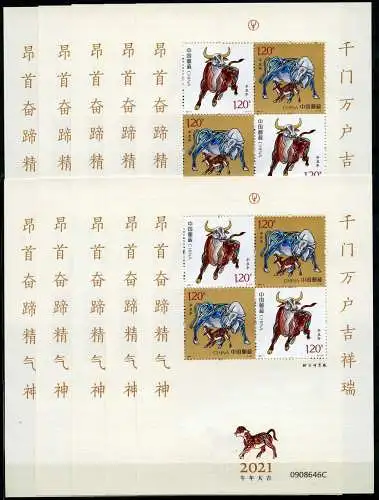 昂首奋蹄精
昂首奋蹄精
昂首奋蹄精
昂首奋蹄精
昂首奋蹄精
千门万户吉
中国邮政 CHINA
120分
120分
CHINA 中国邮政
120分
中国邮政 CHINA
120
昂首奋蹄精气神
昂首奋蹄精气神
昂首奋蹄精气神
昂首奋蹄精气神
昂首奋蹄精气神
千门万户吉祥瑞
中国邮政 CHINA
120分
120分
CHINA 中国邮政
120分
CHINA 中国邮政
中国邮政 CHINA
120分
2021
牛年大吉
0908646C